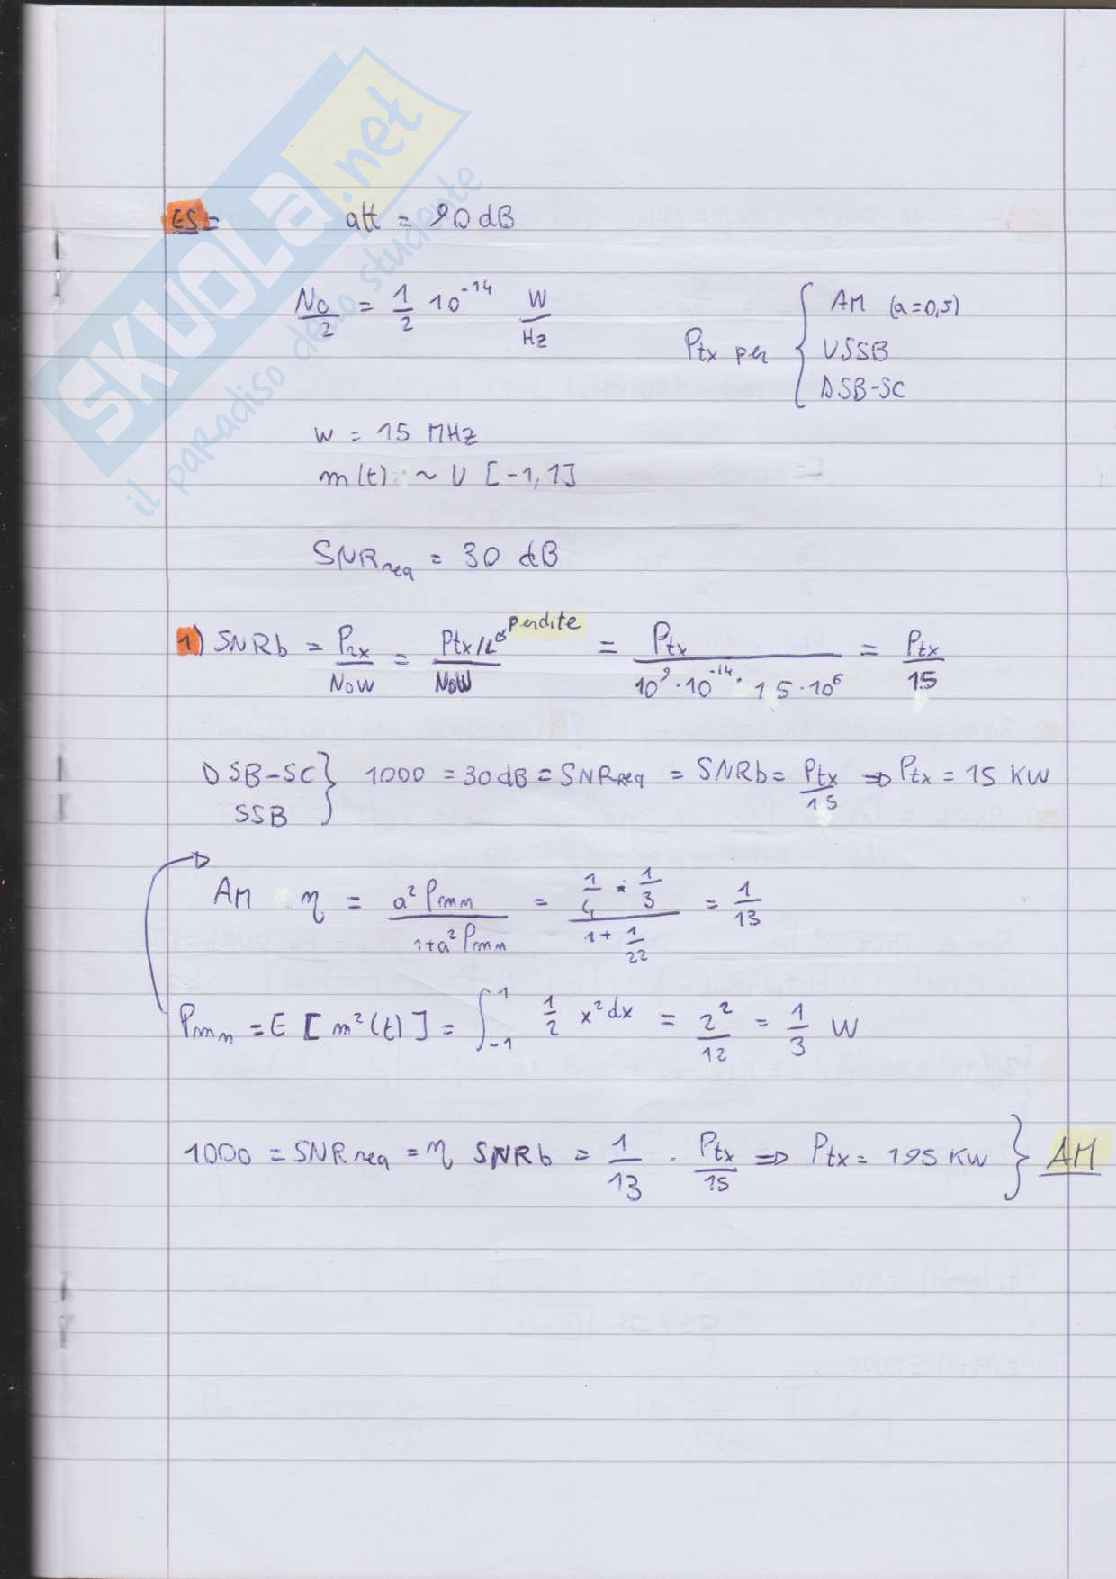 SKUOLA.net
il paradiso dello studente
ES= att = 90 dB
No/2 = 1/2 10^-14 W/Hz
Ptx per { AM (a=0,5)
USSB
DSB-SC
W = 15 MHz
m(t) ~ U [-1,1]
SNRreq = 30 dB
1) SNRb = Prx/NoW = Ptx/L perdite/NoW = Ptx/10^9 · 10^-14 · 15 · 10^6 = Ptx/15
DSB-SC
SSB } 1000 = 30 dB = SNRreq = SNRb = Ptx/15 => Ptx = 15 KW
AM η = a² Pmn/1+a² Pmn = 1/4 · 1/3/1 + 1/22 = 1/13
Pmn = E [m²(t)] = ∫_-1^1 1/2 x² dx = 2²/12 = 1/3 W
1000 = SNRreq = η SNRb = 1/13 · Ptx/15 => Ptx = 195 KW } AM